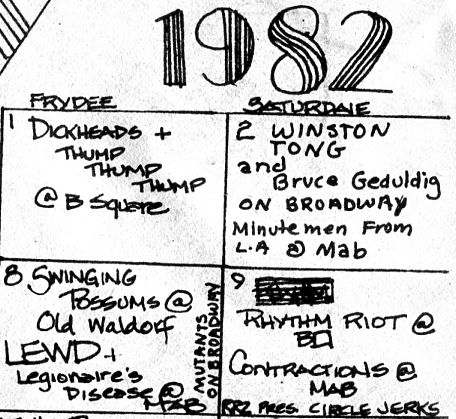 1982
FRYDEE
SATURDAIE
1 DICKHEADS +
THUMP
THUMP
THUMP
@ B Square
2 WINSTON
TONG
and
Bruce Geduldig
ON BROADWAY
Minutemen From
L.A @ Mab
8 SWINGING
POSSUMS @
Old Waldorf
LEWD +
Legionaire's
Disease @
MAB
MUTANTS
ON BROADWAY
9
RHYTHM RIOT @
CONTRACTIONS @
MAB
PRES. CIRCLE JERKS